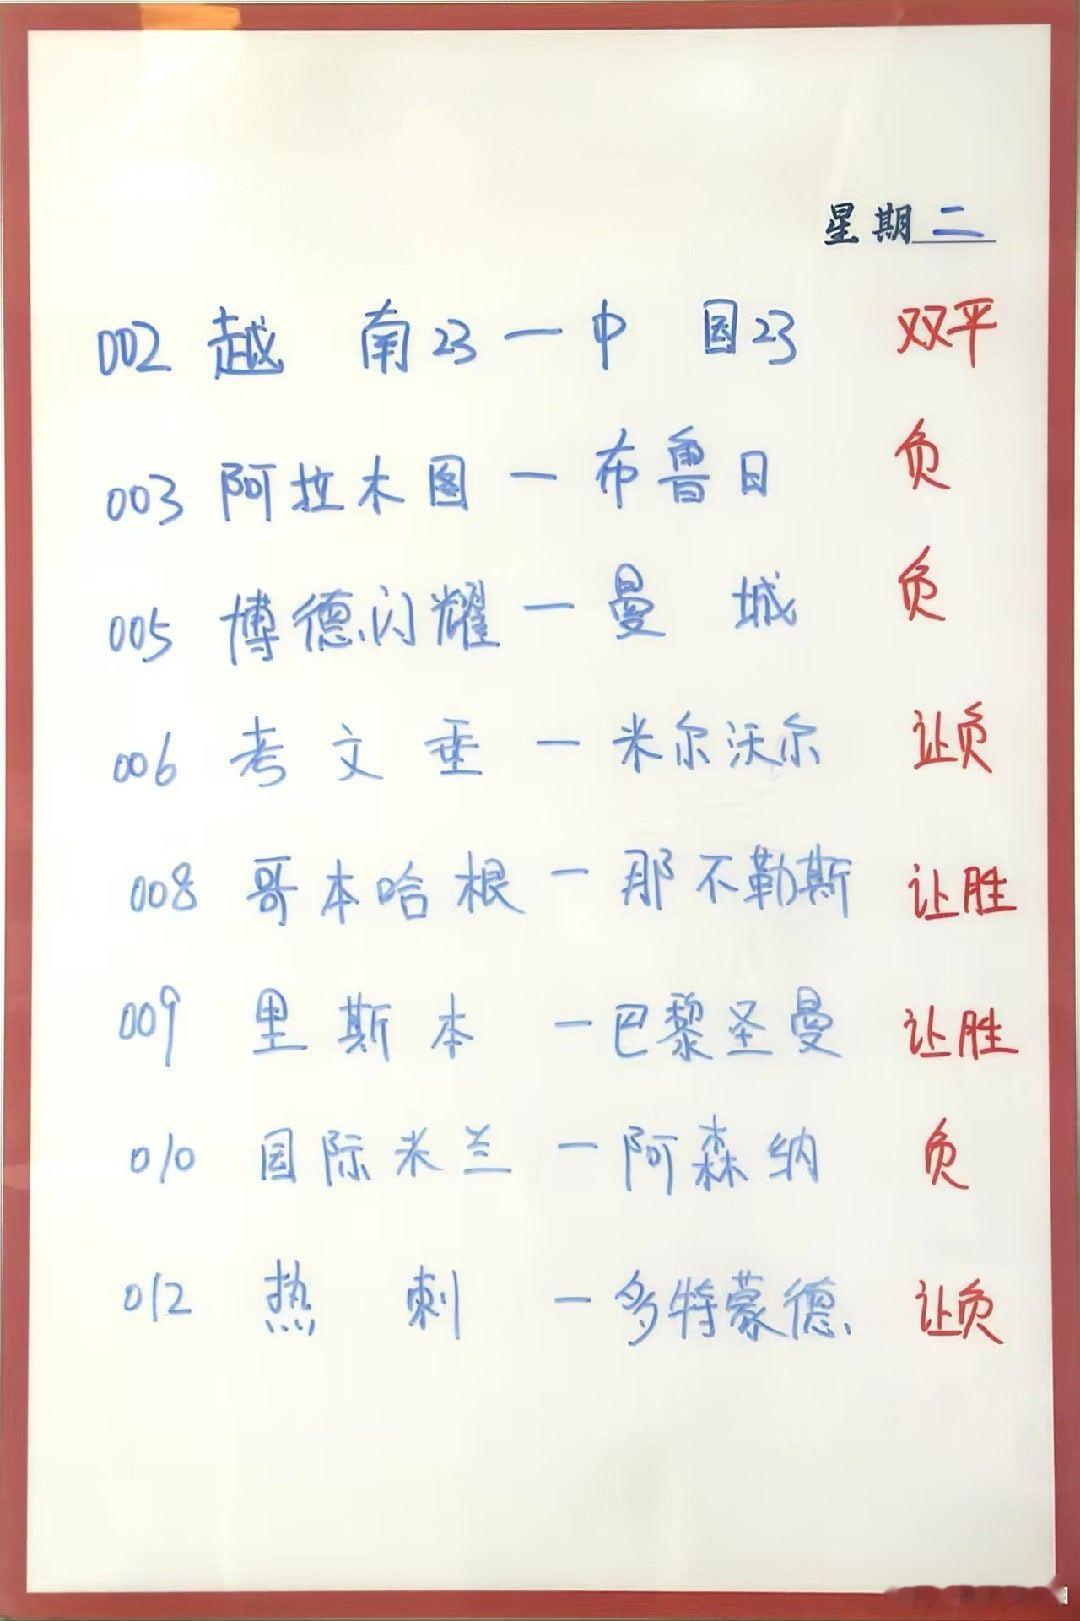 星期二
002 越南23一中国23 双平
003 阿拉木图一布鲁日 负
005 博德闪耀一曼城 负
006 考文垂一米尔沃尔 让负
008 哥本哈根一那不勒斯 让胜
009 里斯本一巴黎圣曼 让胜
010 国际米兰一阿森纳 负
012 热刺一多特蒙德 让负